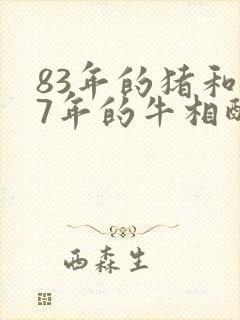 83年的猪和
7年的牛相配
西森生